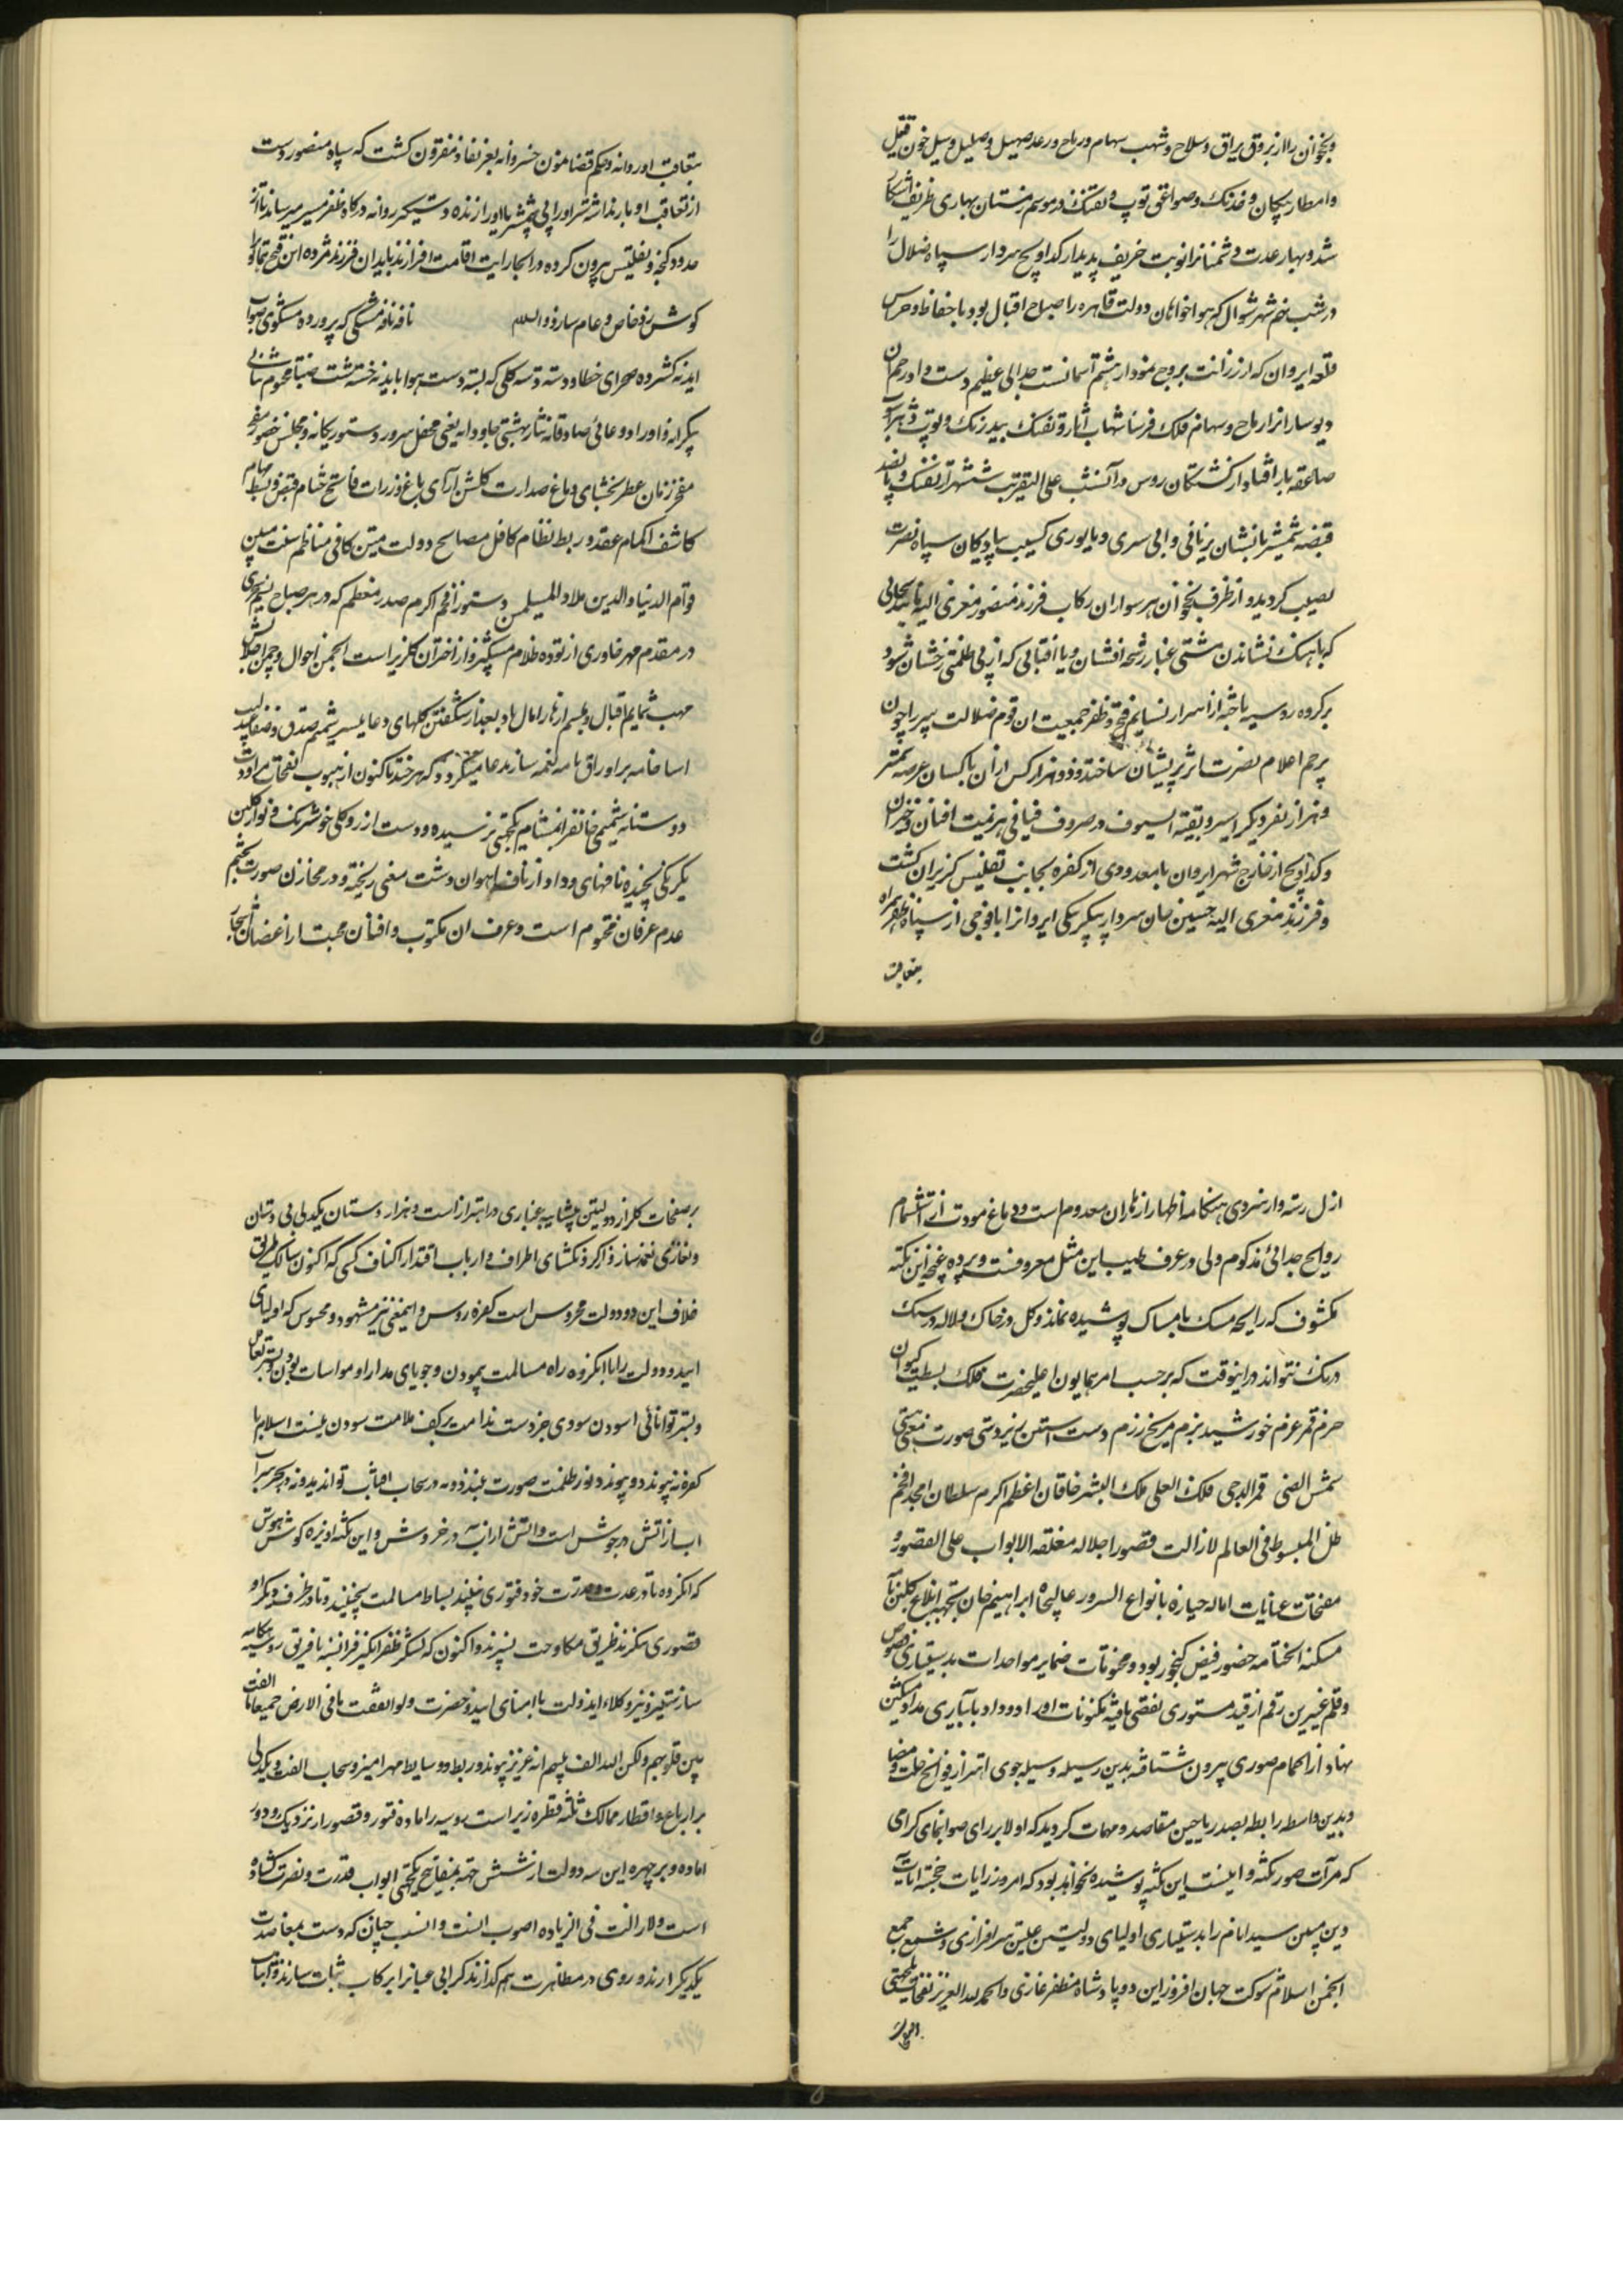 ونخوان را از بروق یراق و سلاح و شهب سهام و رماح و رعد صهیل و صلیل و سیل خون قتیل
و امطار پیکان و خدنک و صواعق توپ و تفنک در موسم زمستان بهاری ظریف آشکار
شد و بهار عدت دشمنانرا نوبت خریف پدیدار کداویچ سردار سپاه ضلال را
در شب نهم شهر شوال که هواخواهان دولت قاهره را صباح اقبال بود با حفاظ و حرس
قلعه ایروان که از رزانت بروج نمودار هشتم آسمانست جدالی عظیم دست داد رجم آن
دیوساران از رماح و سهام فلک فرسا شهاب آثار و تفنک بیدرنک و توپ
صاعقه بار افتاد از کشتکان روس در آنشب علی التقریب ششهزار تفنک و پانصد
قبضه شمشیر با نشان بزبانی و ابی سری و بایوری کسیب پیادکان سپاه نصرت
نصیب کردید و از طرف نخجوان هم سواران رکاب فرزند منصور معزی الیه
که باهنک نشاندن مشتی غبار رشحه افشان و یا آفتابی که از پی ظلمتی رخشان شود
بر کروه روسیه تاخته از اسرار نسایم فتح و ظفر جمعیت ان قوم ضلالت سپر را چون
پرچم اعلام نصرت اثر پریشان ساختند و دو هزار کس از آن ناکسان عرصه
و هزار نفر دیکر اسیر و بقیة السیوف در صروف فیافی هزیمت افتان و خیزان
و کداویچ از خارج شهر ایروان با معدودی از کفره بجانب تفلیس کریزان کشت
و فرزند معزی الیه حسین خان سردار بیکلربیکی ایروانرا با فوجی از سپاه ظفر همراه
بتعاقب
بتعاقب او روانه و حکم قضا مضمون خسروانه بعز نفاذ مقرون کشت که سپاه منصور دست
از تعاقب او باز نداشته سر او را بی شمشیر یا او را زنده دستکیر روانه درکاه ظفر مسیر میسازند یا از
حدود کنجه و تفلیس بیرون کرده در انجا رایت اقامت افرازند باید ان فرزند مژده این فتح
کوش زد خاص و عام سازد والسلام نافه نافه مشکی که پرورده مشکوی صواب
اید نه کشروه صحرای خطا و دسته دسته کلی که بسته دست هوا باید نه خسته شست صبا
بیکرانه و اوراد دعائی صادقانه نثار بهشتی جاودانه یعنی محفل سرور دستور یکانه و مجلس حضور
مفخر زمان عطر بخشای دماغ صدارت کلشن آرای باغ وزارت فاتح ختام قبض و بسط مهام
کاشف اکمام عقد و ربط نظام کافل مصالح دولت متین کافی مناظم سنت مبین
قوام الدنیا والدین ملاذ المسلمین دستور افخم اکرم صدر معظم که در هر صباح
در مقدم مهر خاوری از توده ظلام مسک بیز و از اختران کلریز است انجمن احوال و چمن
مهب شمایم اقبال و مبسم ازهار امال باد بعد از شکفتن کلهای دعا بنسیم شمیم صدق و صفا
اسا خامه بر اوراق نامه نغمه ساز مدعا میکردد که هر چند تاکنون از هبوب نفحات مراودت
دوستانه شمیمی جانفزا بمشام یکجهتی نرسیده و دست آرزو کلی خوشرنک و بو از کلبن
یکرنکی نچیده نافهای وداد از نافه آهوان دشت معنی ریخته و در مخازن صورت
عدم عرفان مختوم است و عرف ان مکتوب و افنان محبت را از اغصان
ازل رسته و از سروی هنکامه اظهار ازهار آن معدوم است و دماغ مودت از استشمام
روایح جدائی مذکوم ولی در عرف طیب این مثل معروفست و بر ده غنچه این نکته
مکشوف که رایحه مسک بامساک پوشیده نماند و کل در خاک و لاله در سنک
درنک نتواند در اینوقت که بر حسب امر همایون اعلیحضرت فلک بسطت کیوان
حزم قمر عزم خورشید بزم مریخ رزم دست آستین
شمس الضحی قمر الدجی فلک العلی ملک البشر خاقان اعظم اکرم سلطان امجد افخم
ظل المبسوط فی العالم لازالت قصور اجلاله مغلقه الابواب علی القصور و
مفتحات عنایات اماله حیازه بانواع السرور عالیجاه ابراهیم خان بجهة ابلاغ
مسکنه الختامه حضور فیض کنجور بود و مختومات ضمایر مواحدات بدستیاری
و قلم عنبرین رقم از قید مستوری تفصی یافته مکنونات اوراد وداد بآبیاری مداد
نهاد از اکمام صوری بیرون شتافته بدین رسیله وسیله جوی اهتزاز فوایح
و بدین واسطه رابطه بصدر ریاحین مقاصد و مهمات کردید که اولا بر رای صوابنمای کرامی
که مرآت صور نکته دانیست این نکته پوشیده نخواهد بود که امروز رایات خجسته آیات
دین مبین سید انام را بدستیاری اولیای دولتین علیتین سرافرازی و شمع جمع
انجمن اسلام شوکت جهان افروز این دو پادشاه مظفر غازی و الحمد لله العزیز
بر صفحات کلزار دولتین بیشایبه غباری در اهتزاز است و هزار دستان یکدلی
نغمه ساز ذاکر و نکشای اطراف و ارباب اقتدار اکناف کسی که اکنون سالک طریق
خلاف این دو دولت محروس است کفره روس و اینمعنی نیز مشهود و محسوس که اولیای
ابید دو دولت را با انکروه راه مسالمت پیمودن و جویای مدارا و مواسات بودن
و بستر توانائی اسودن سودی جز دست ندامت بر کف ملامت سودن نیست اسلام با
کفر نه پیوندد و پیوند نور ظلمت صورت نبندد نه در سحاب افتاب تواند بود نه در بحر سراب
اب از آتش در جوش است و آتش از آب در خروش و این نکته آویزه کوش هوش
که انکروه تا در عدت و قدرت خود فتوری نبینند بساط مسالمت نچینند و تا در طرف دیکر
قصوری ننکرند طریق مکاوحت نسپرند و اکنون که لشکر ظفر انکیز فرانسه با فریق روسیه هنکامه
ساز ستیز و نیز وکلاء ایندولت با امنای ابید حضرت ولو انفقت ما فی الارض جمیعا ما الفت
بین قلوبهم ولکن الله الف بینهم انه عزیز پیوند و ربط و وسایط مهر امیز و سحاب الفت و یکدلی
بر ارباع و اقطار ممالک ثلثه قطره زیر است روسیه را ماده فتور و قصور از نزدیک و دور
اماده و بر چهره این سه دولت از شش جهة بمفاتیح یکجهتی ابواب قدرت و نصرت کشاده
است ولازالت فی الزیاده اصوب السنت و انسب چنان که دست بمعاضدت
یکدیکر ارند و روی در مظاهرت هم کذارند کرایی عیانرا بر کاب ثبات سازند